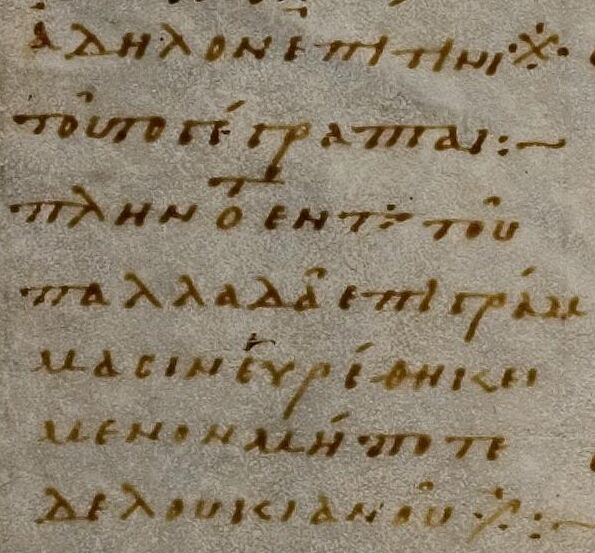 ἄδηλον ἐπὶ τίνι ※
τοῦτο γέγραπται :~
πλὴν ὅτ ἐν τ τοῦ
παλλαδᾶ ἐπιγράμ
μασιν εὑρέθη κεί
μενον μήποτε
δε λουκιανοῦ ※ :~